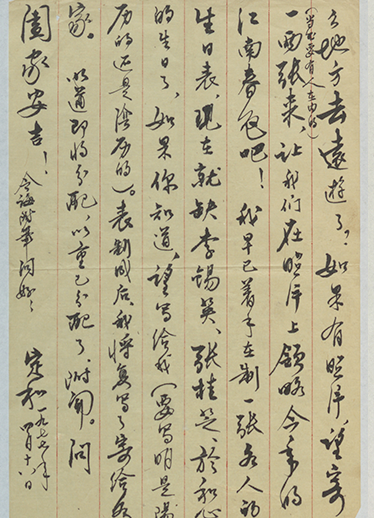 么地方去远遊了？如果有照片，望寄
一両张来，让我们在照片上领略今年的
（当然要有人在内的）
江南春色吧！我早已着手在制一张各人的
生日表，现在就缺李锡英、张桂芝、於和心
的生日了，如果你知道，望写给我（要写明是陽
历的还是陰历的）。表制成后，我将复写了寄给各
家。以道即将分配，以重已分配了，附闻。问
阖家安吉！
令海附笔问好
定和 一九七七年
四月十八日